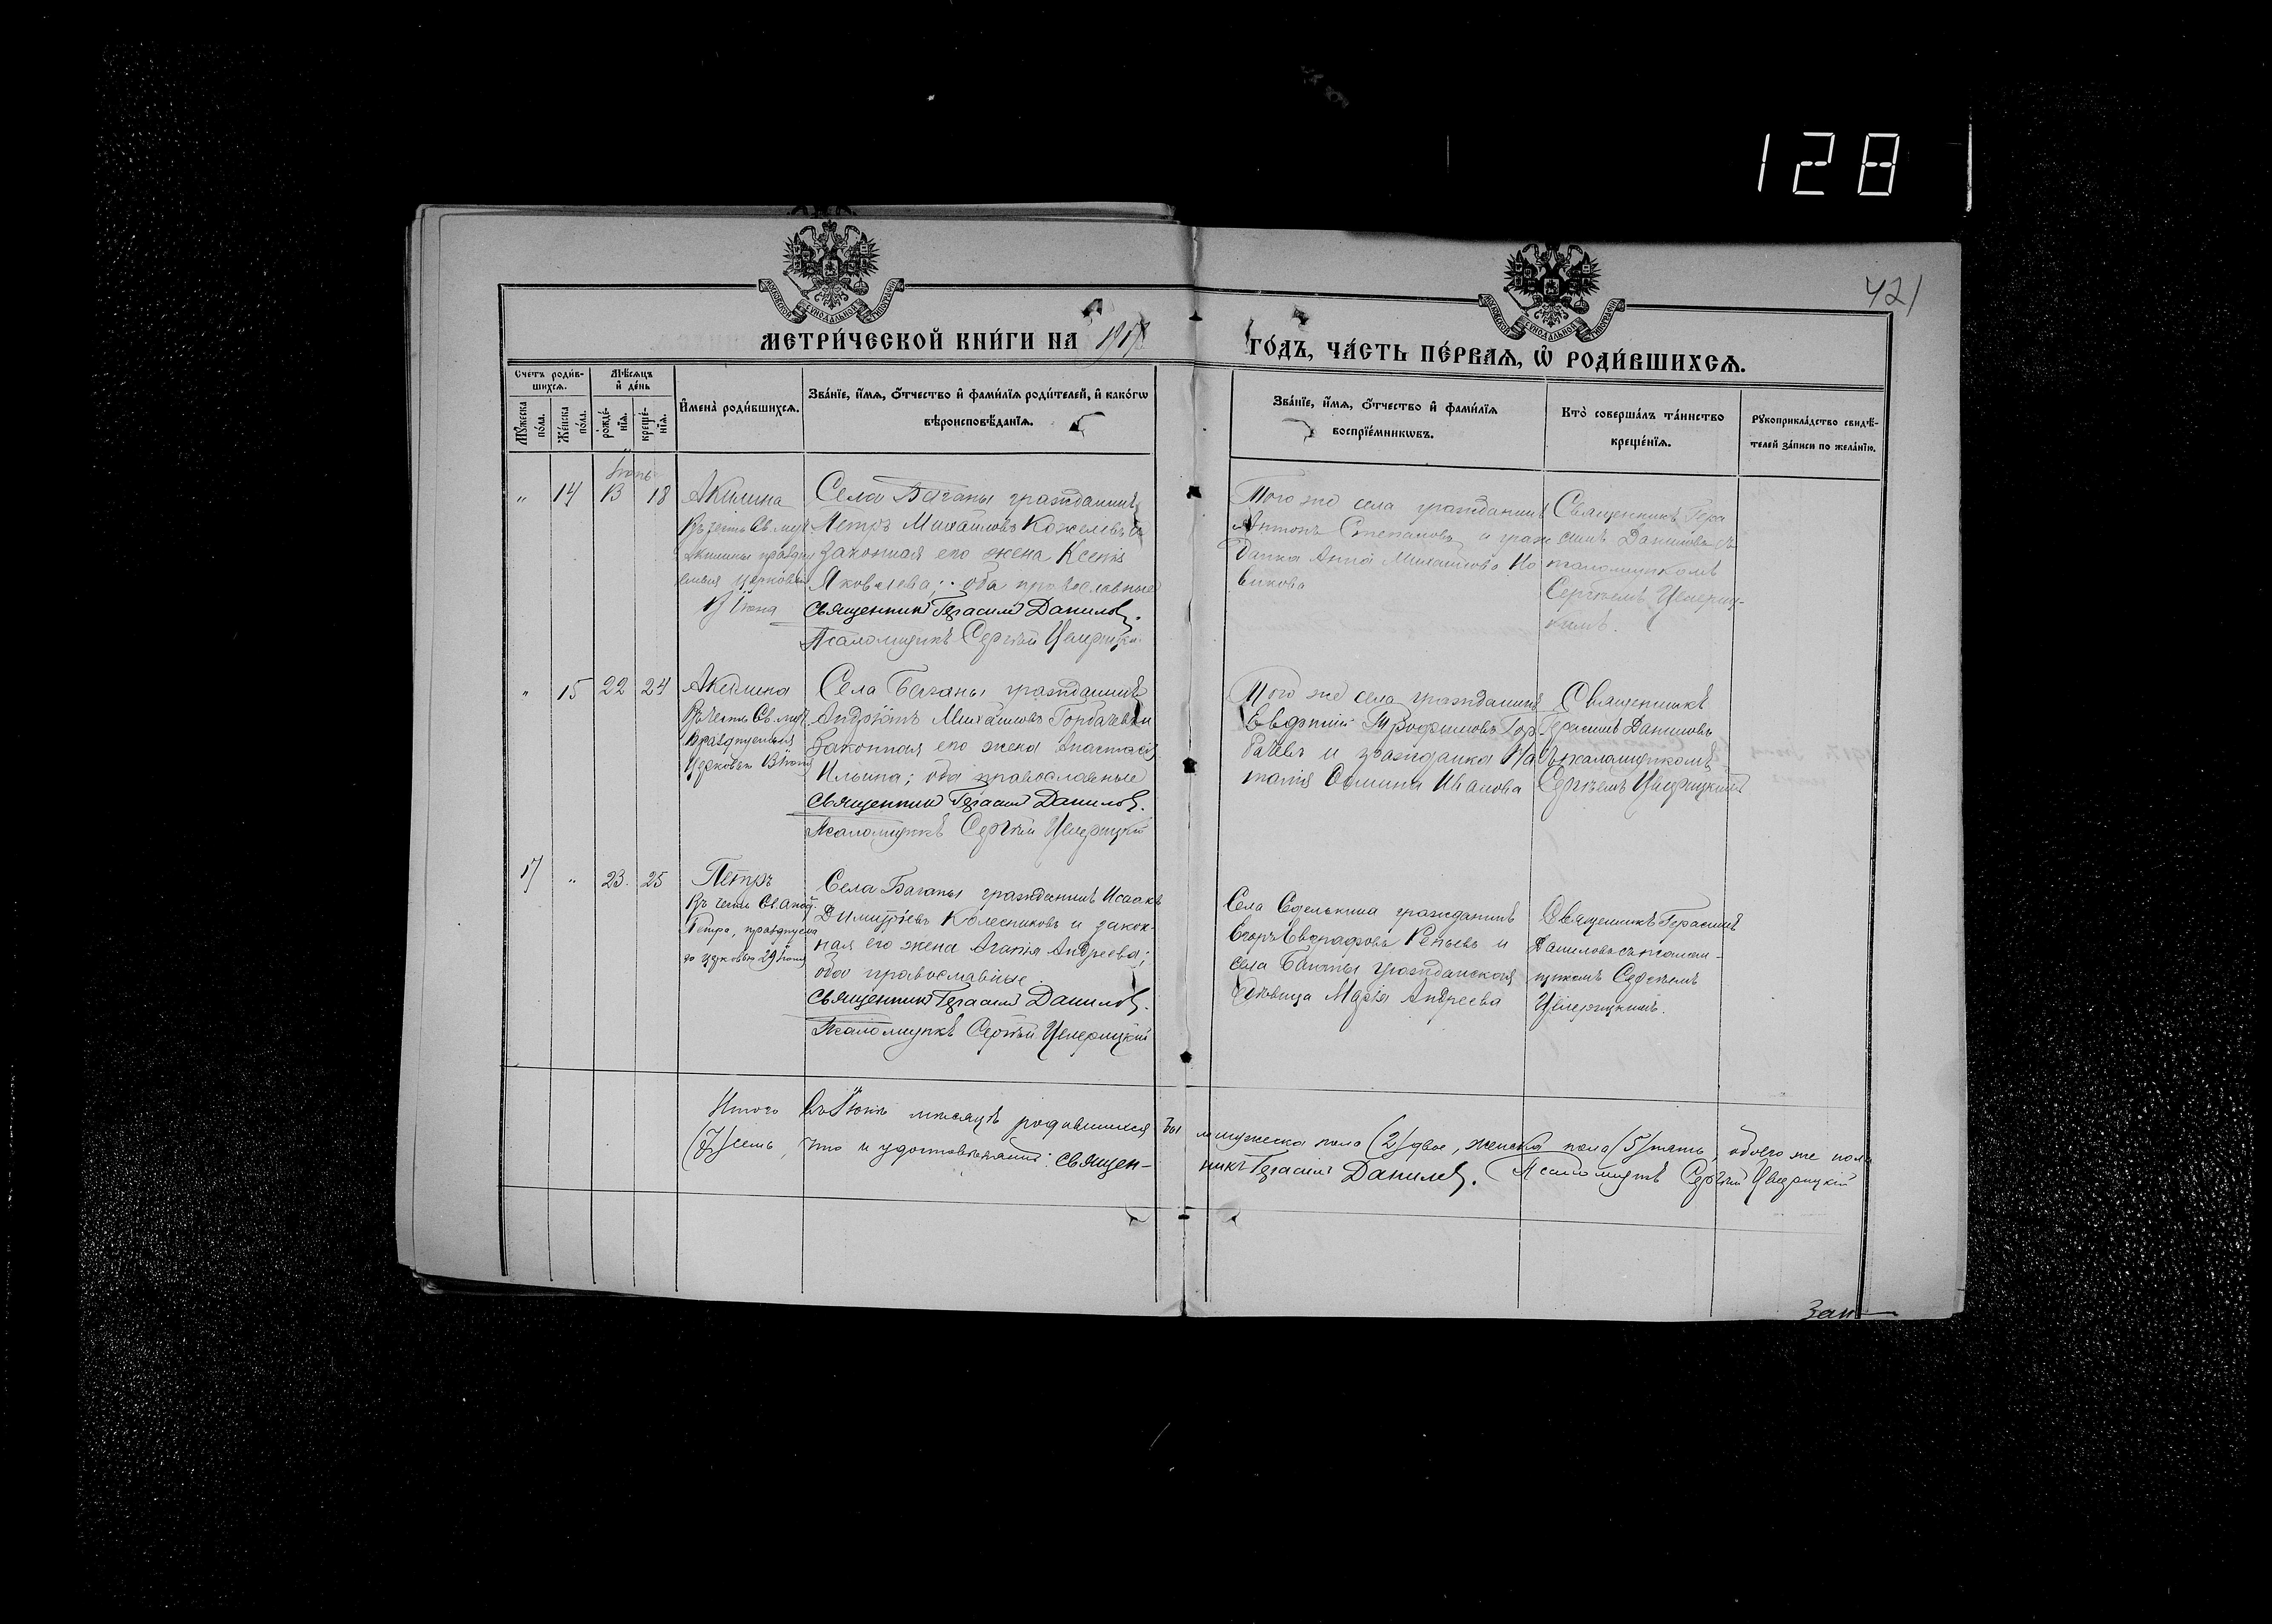 128
421
МЕТРИ́ЧЕСКОЙ КНИ́ГИ НА 1917
ГО́ДЪ, ЧА́СТЬ ПЕ́РВАЯ, Ѽ РОДИ́ВШИХСЯ.
Счетъ роди́в-
шихся.
Мѣ́сяцъ
и де́нь
Мꙋ́жеска
по́ла.
Же́нска
по́ла.
рожде́-
нїя.
креще́-
нїя.
И҆мена̀ роди́вшихся.
Зва́нїе, и҆́мя, ѻ҆́тчество и҆ фами́лїя роди́телей, и҆ како́гѡ
вѣроисповѣ́данїя.
Зва́нїе, и҆́мя, ѻ҆́тчество и҆ фами́лїя
воспрїе́мникѡвъ.
Кто̀ соверша́лъ та́инство
креще́нїя.
Рꙋкоприкла́дство свидѣ́-
телей за́писи по жела́нїю.
Іюнь
„ 14 13 18
Акилина
Въ честь Св. муч.
Акилины праздну
емыя церковью
13 Іюня
Села Баганы гражданинъ
Петръ Михайловъ и
законная его жена Ксенія
Яковлева; оба православные
Священникъ Герасимъ Даниловъ.
Псаломщикъ Сергѣй
Того же села гражданинъ
Антонъ Степановъ и граж
данка Анна Михайлова Но
викова
Священникъ Гера
симъ Даниловъ съ
псаломщикомъ
Сергѣемъ
„ 15 22 24
Акилина
Въ честь Св. муч.
празднуемыя
Церковью 13 Іюня
Села Баганы гражданинъ
Андріанъ Михайловъ Горбачевъ и
законная его жена Анастасія
Ильина; оба православные
Священникъ Герасимъ Даниловъ.
Псаломщикъ Сергѣй
Того же села гражданинъ
Евфимій Трофимовъ Гор
бачевъ и гражданка На
талія Иванова
Священникъ
Герасимъ Даниловъ
съ псаломщикомъ
Сергѣемъ
17 „ 23. 25
Петръ
Въ честь Св. Апос.
Петра, празднуема
го церковью 29 Іюня
Села Баганы гражданинъ Исаакъ
Димитріевъ Колесниковъ и закон-
ная его жена Агапія Андреева;
оба православные.
Священникъ Герасимъ Даниловъ.
Псаломщикъ Сергѣй
Села гражданинъ
Егоръ Евграфовъ и
села Баганы гражданская
вдовица Марія Андреева
Священникъ Герасимъ
Даниловъ съ псалом-
щикомъ Сергѣемъ
Итого въ Іюнѣ мѣсяцѣ родившихся бы
ло мужеска пола (2) двое, женска пола (5) пять, обоего же пола
(7) семь, что и удостовѣряемъ: Священ-
никъ Герасимъ Даниловъ. Псаломщикъ Сергѣй